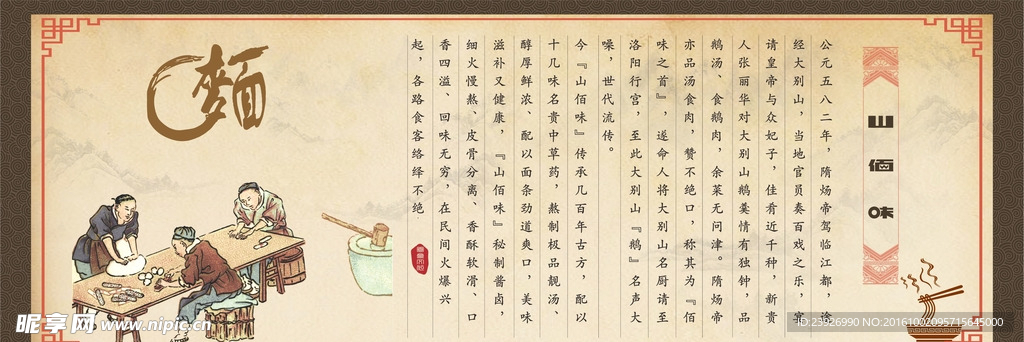 山佰味
公元五八二年，隋炀帝驾临江都，途
经大别山，当地官员奏百戏之乐，宴
请皇帝与众妃子，佳肴近千种，新贵
人张丽华对大别山鹅羹情有独钟，品
鹅汤、食鹅肉，余菜无问津。隋炀帝
亦品汤食肉，赞不绝口，称其为『佰
味之首』，遂命人将大别山名厨请至
洛阳行宫，至此大别山『鹅』名声大
噪，世代流传。
今『山佰味』传承几百年古方，配以
十几味名贵中草药，熬制极品靓汤、
醇厚鲜浓、配以面条劲道爽口，美味
滋补又健康，『山佰味』秘制酱卤，
细火慢熬、皮骨分离、香酥软滑、口
香四溢、回味无穷，在民间火爆兴
起，各路食客络绎不绝
麵
昵享网 www.nipic.cn
ID:23926990 NO:20161002095715645000